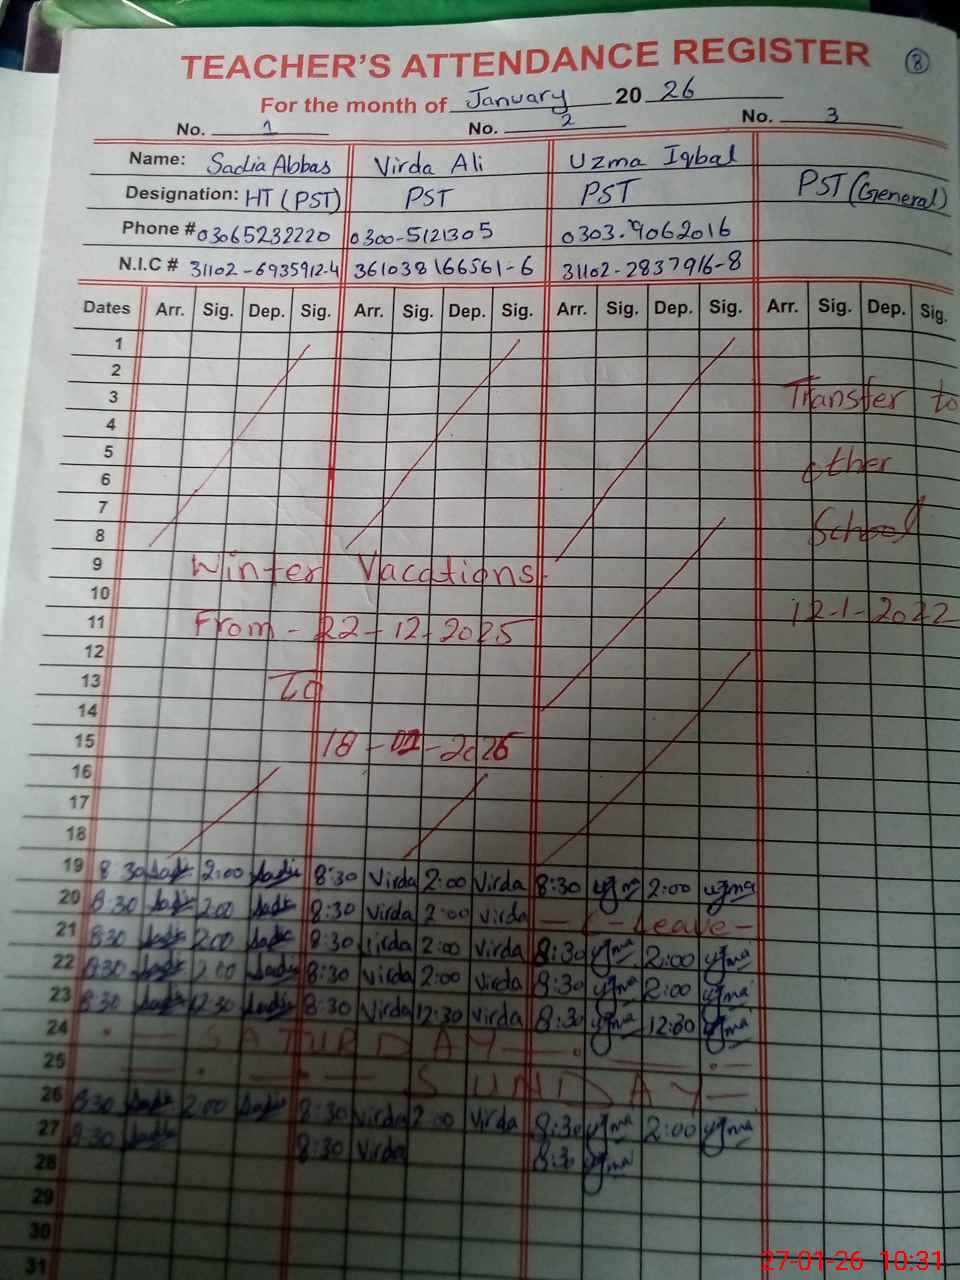 TEACHER'S ATTENDANCE REGISTER
8
For the month of January 20 26
No. 1 No. 2 No. 3
Name: Sadia Abbas Virda Ali Uzma Iqbal
Designation: HT (PST) PST PST PST (General)
Phone # 03065232220 0300-5121305 0303-9062016
N.I.C # 31102-6935912-4 361038166561-6 31102-2837916-8
Dates Arr. Sig. Dep. Sig. Arr. Sig. Dep. Sig. Arr. Sig. Dep. Sig. Arr. Sig. Dep. Sig.
1
2
3 Transfer to
4
5 other
6
7 School
8
9 Winter Vacations
10
11 From - 22-12-2025 12-1-2022
12
13 To
14
15 18-01-2026
16
17
18
19 8:30 Sadia 2:00 Sadia 8:30 Virda 2:00 Virda 8:30 uzma 2:00 uzma
20 8:30 Sadia 2:00 Sadia 8:30 Virda 2:00 Virda - C - Leave -
21 8:30 Sadia 2:00 Sadia 8:30 Virda 2:00 Virda 8:30 uzma 2:00 uzma
22 8:30 Sadia 2:00 Sadia 8:30 Virda 2:00 Virda 8:30 uzma 2:00 uzma
23 8:30 Sadia 12:30 Sadia 8:30 Virda 12:30 Virda 8:30 uzma 12:30 uzma
24 SATURDAY
25 SUNDAY
26 8:30 Sadia 2:00 Sadia 8:30 Virda 2:00 Virda 8:30 uzma 2:00 uzma
27 8:30 Sadia 8:30 Virda 8:30 uzma
28
29
30
31
27-01-26 10:31